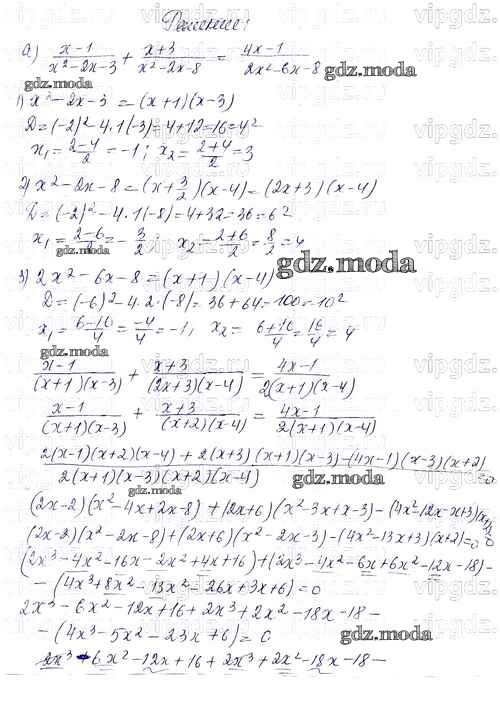 Решение:
а) (x-1)/(x²-2x-3) + (x+3)/(x²-2x-8) = (4x-1)/(2x²-6x-8)
gdz.moda
gdz.moda
1) x²-2x-3 = (x+1)(x-3)
D=(-2)²-4·1(-3)=4+12=16=4²
x₁=(2-4)/2=-1; x₂=(2+4)/2=3
2) x²-2x-8=(x+3/2)(x-4)=(2x+3)(x-4)
D=(-2)²-4·1(-8)=4+32=36=6²
x₁=(2-6)/2=-3/2; x₂=(2+6)/2=8/2=4
gdz.moda
gdz.moda
3) 2x²-6x-8=(x+1)(x-4)
D=(-6)²-4·2·(-8)=36+64=100=10²
x₁=(6-10)/4=-4/4=-1, x₂=(6+10)/4=16/4=4
gdz.moda
(x-1)/((x+1)(x-3)) + (x+3)/((2x+3)(x-4)) = (4x-1)/(2(x+1)(x-4))
(x-1)/((x+1)(x-3)) + (x+3)/((x+2)(x-4)) = (4x-1)/(2(x+1)(x-4))
gdz.moda
(2(x-1)(x+2)(x-4)+2(x+3)(x+1)(x-3)-(4x-1)(x-3)(x+2))/(2(x+1)(x-3)(x+2)(x-4))=0
gdz.moda
gdz.moda
(2x-2)(x²-4x+2x-8)+(2x+6)(x²-3x+x-3)-(4x²-12x-x+3)
(2x-2)(x²-2x-8)+(2x+6)(x²-2x-3)-(4x²-13x+3)(x+2)=0
(2x³-4x²-16x-2x²+4x+16)+(2x³-4x²-6x+6x²-12x-18)-
-(4x³+8x²-13x²-26x+3x+6)=0
gdz.moda
2x³-6x²-12x+16+2x³+2x²-18x-18-
-(4x³-5x²-23x+6)=0
gdz.moda
2x³-6x²-12x+16+2x³+2x²-18x-18-